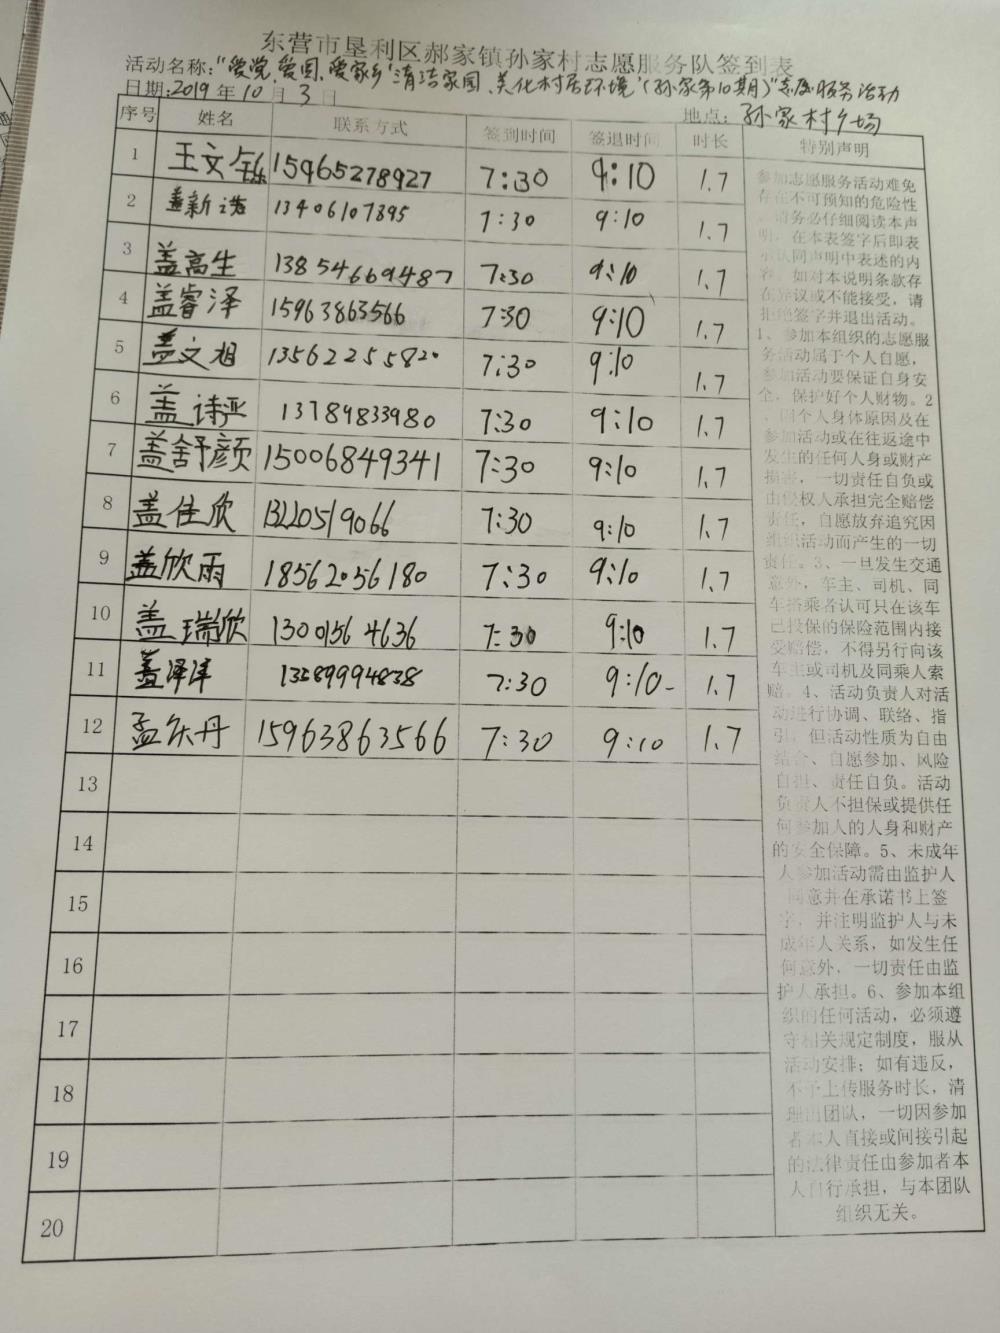 东营市垦利区郝家镇孙家村志愿服务队签到表
活动名称:“爱党、爱国、爱家乡‘清洁家园、美化村居环境’(孙家第10期)”志愿服务活动
日期:2019年10月3日
地点: 孙家村广场
序号 姓名 联系方式 签到时间 签退时间 时长 特别声明
1 王文钰 15965278927 7:30 9:10 1.7
2 盖新 13406107395 7:30 9:10 1.7
3 盖高生 13854669487 7:30 9:10 1.7
4 盖睿泽 15963863566 7:30 9:10 1.7
5 盖文旭 13562255820 7:30 9:10 1.7
6 盖诗亚 13789833980 7:30 9:10 1.7
7 盖舒颜 15006849341 7:30 9:10 1.7
8 盖佳欣 13220519066 7:30 9:10 1.7
9 盖欣雨 18562056180 7:30 9:10 1.7
10 盖瑞欣 13001564636 7:30 9:10 1.7
11 盖泽洋 13589994838 7:30 9:10 1.7
12 孟庆丹 15963863566 7:30 9:10 1.7
13
14
15
16
17
18
19
20
参加志愿服务活动难免
存在不可预知的危险性
，请务必仔细阅读本声
明，在本表签字后即表
示认同声明中表述的内
容。如对本说明条款存
在异议或不能接受，请
拒绝签字并退出活动。
1、参加本组织的志愿服
务活动属于个人自愿，
参加活动要保证自身安
全，保护好个人财物。2
、因个人身体原因及在
参加活动或在往返途中
发生的任何人身或财产
损害，一切责任自负或
由侵权人承担完全赔偿
责任，自愿放弃追究因
组织活动而产生的一切
责任。3、一旦发生交通
意外，车主、司机、同
车搭乘者认可只在该车
已投保的保险范围内接
受赔偿，不得另行向该
车主或司机及同乘人索
赔。4、活动负责人对活
动进行协调、联络、指
引，但活动性质为自由
结合、自愿参加、风险
自担、责任自负。活动
负责人不担保或提供任
何参加人的人身和财产
的安全保障。5、未成年
人参加活动需由监护人
同意并在承诺书上签
字，并注明监护人与未
成年人关系，如发生任
何意外，一切责任由监
护人承担。6、参加本组
织的任何活动，必须遵
守相关规定制度，服从
活动安排；如有违反，
不予上传服务时长，清
理出团队，一切因参加
者本人直接或间接引起
的法律责任由参加者本
人自行承担，与本团队
组织无关。